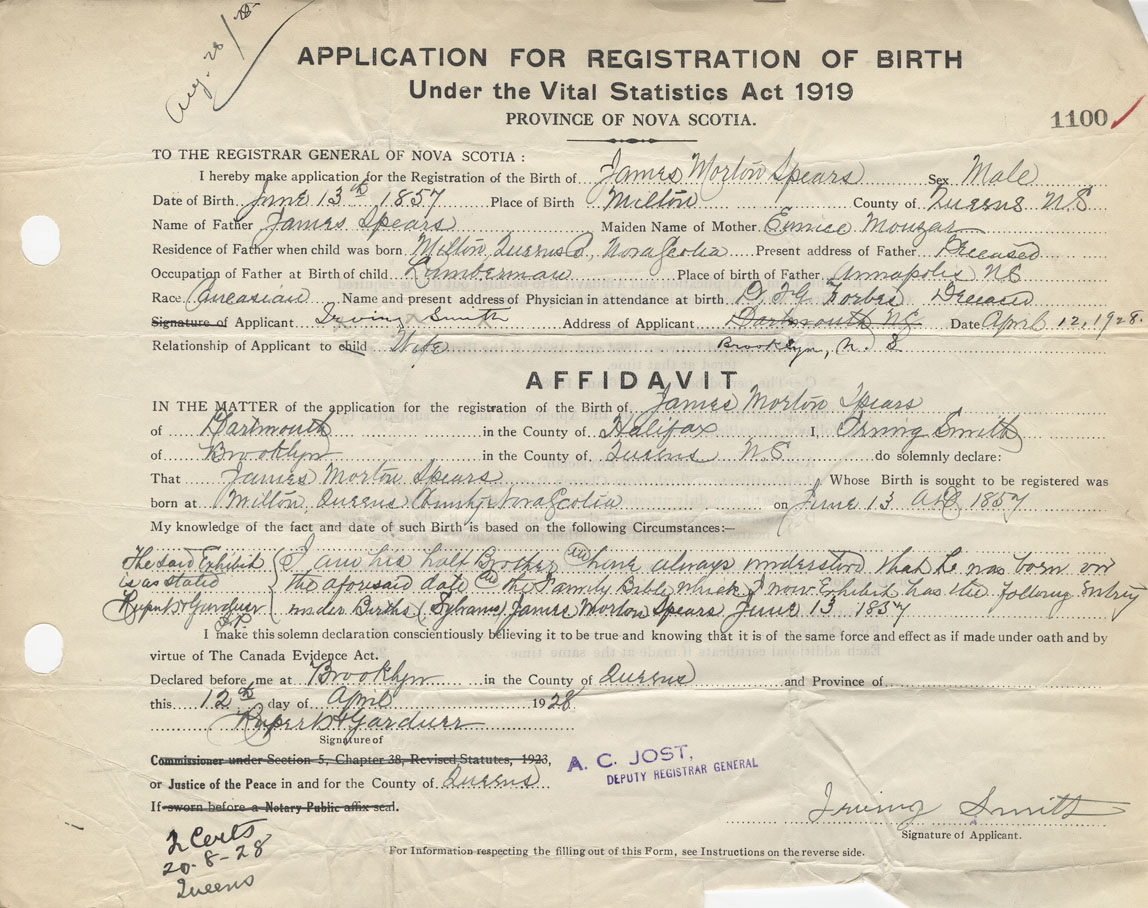 Aug. 28/28
APPLICATION FOR REGISTRATION OF BIRTH
Under the Vital Statistics Act 1919
PROVINCE OF NOVA SCOTIA.
1100
TO THE REGISTRAR GENERAL OF NOVA SCOTIA :
I hereby make application for the Registration of the Birth of James Morton Spears Sex Male
Date of Birth June 13th 1857 Place of Birth Milton County of Queens N.S
Name of Father James Spears Maiden Name of Mother Eunice Mouzar
Residence of Father when child was born Milton, Queens Co., Nova Scotia Present address of Father Deceased
Occupation of Father at Birth of child Lumberman Place of birth of Father Annapolis NS
Race Caucasian Name and present address of Physician in attendance at birth Forbes Deceased
Signature of Applicant Irving Smith Address of Applicant Dartmouth N.S. Date April 12, 1928.
Relationship of Applicant to child Wife Brooklyn, N. S
AFFIDAVIT
IN THE MATTER of the application for the registration of the Birth of James Morton Spears
of Dartmouth in the County of Halifax I, Irving Smith
of Brooklyn in the County of Queens N.S do solemnly declare:
That James Morton Spears Whose Birth is sought to be registered was
born at Milton, Queens County Nova Scotia on June 13 AD 1857
My knowledge of the fact and date of such Birth is based on the following Circumstances:—
The said Exhibit I am his half Brother and have always understood that he was born on
is as stated the aforesaid date and the Family Bible which I now Exhibit has the following Entry
Rupert H Gardner under Births (Sylvanus) James Morton Spears June 13 1857
J.P.
I make this solemn declaration conscientiously believing it to be true and knowing that it is of the same force and effect as if made under oath and by
virtue of The Canada Evidence Act.
Declared before me at Brooklyn in the County of Queens and Province of
this 12th day of April 1928
Rupert H Gardner
Signature of
Commissioner under Section 5, Chapter 38, Revised Statutes, 1923,
or Justice of the Peace in and for the County of Queens
If sworn before a Notary Public affix seal.
A. C. JOST,
DEPUTY REGISTRAR GENERAL
Irving Smith
Signature of Applicant.
2 Certs
20-8-28
Queens
For Information respecting the filling out of this Form, see Instructions on the reverse side.